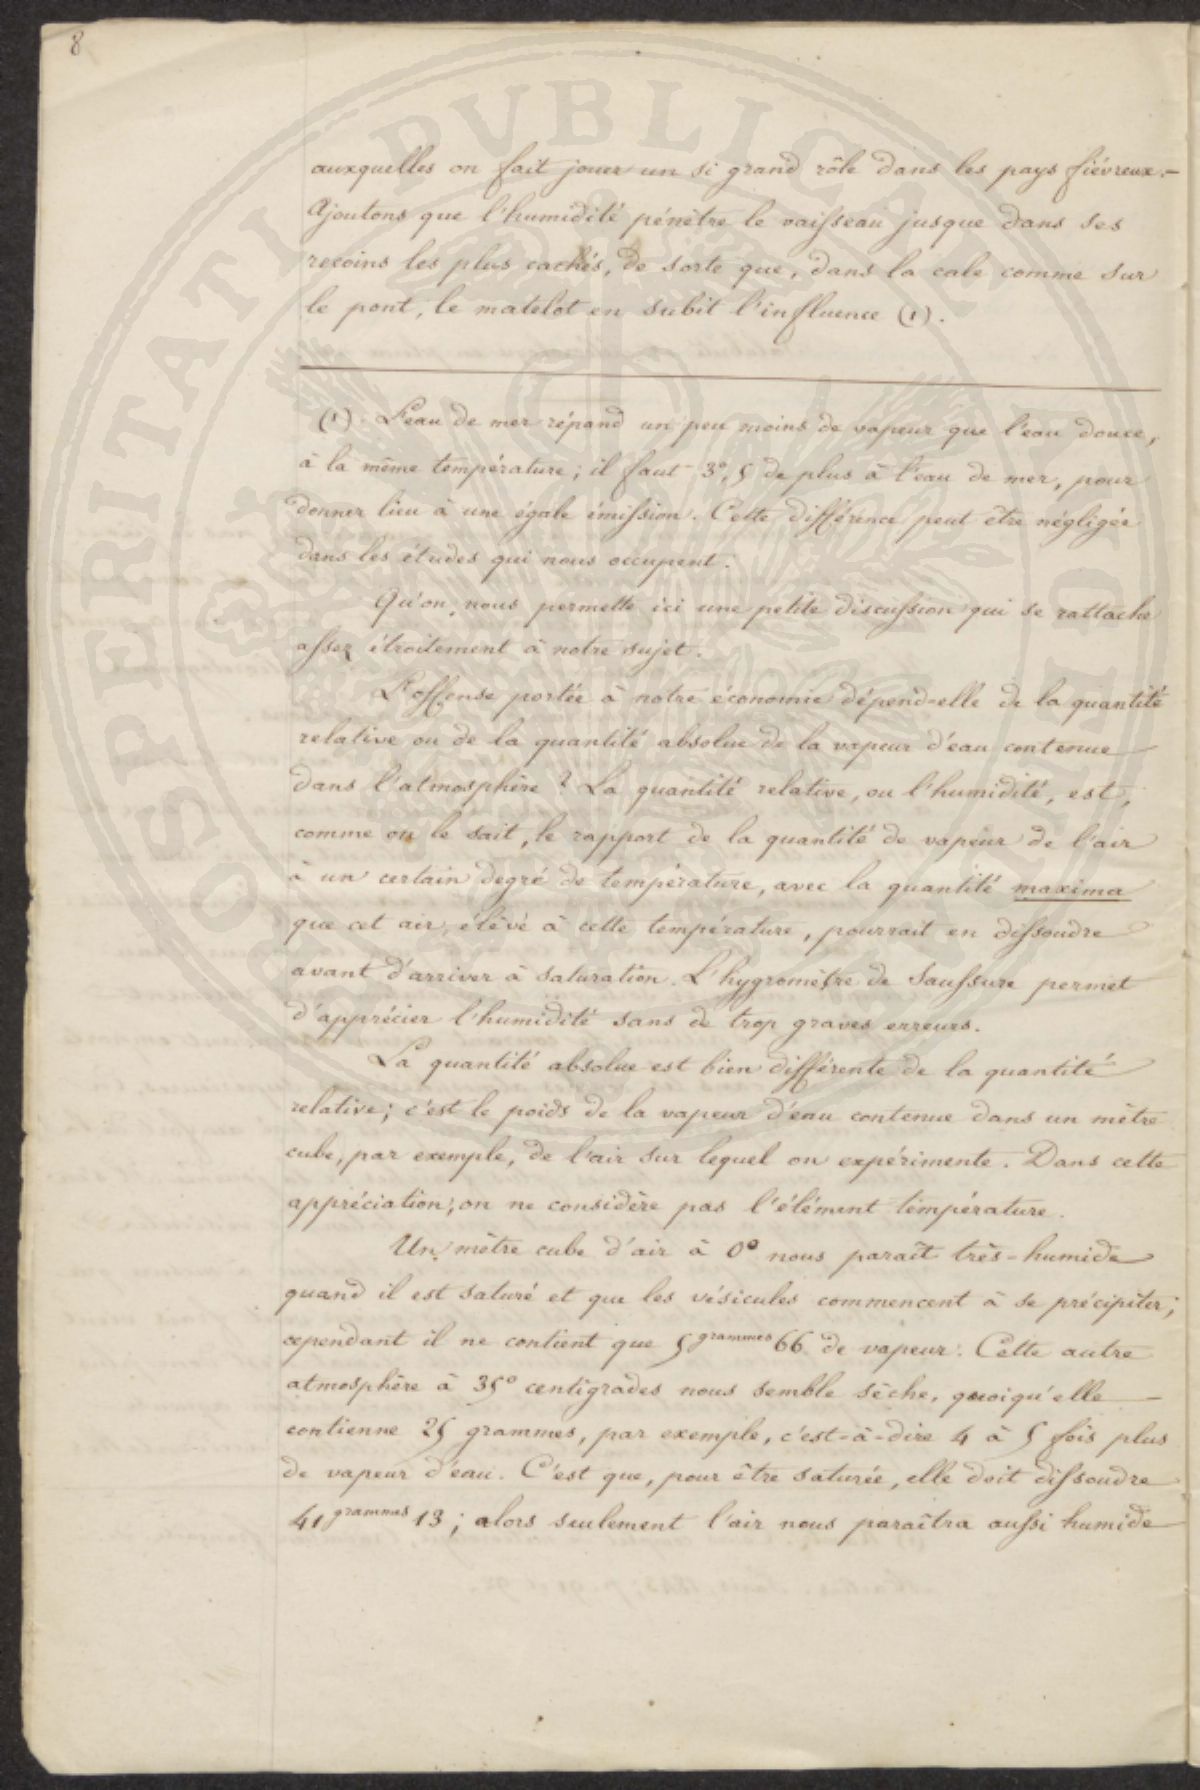 8
auxquelles on fait jouer un si grand rôle dans les pays fiévreux.—
Ajoutons que l'humidité pénètre le vaisseau jusque dans ses
recoins les plus cachés, de sorte que, dans la cale comme sur
le pont, le matelot en subit l'influence (1).
(1). L'eau de mer répand un peu moins de vapeur que l'eau douce,
à la même température; il faut 3°,5 de plus à l'eau de mer, pour
donner lieu à une égale émission. Cette différence peut être négligée
dans les études qui nous occupent.
Qu'on nous permette ici une petite discussion qui se rattache
assez étroitement à notre sujet.
L'offense portée à notre économie dépend-elle de la quantité
relative ou de la quantité absolue de la vapeur d'eau contenue
dans l'atmosphère? La quantité relative, ou l'humidité, est,
comme on le sait, le rapport de la quantité de vapeur de l'air
à un certain degré de température, avec la quantité maxima
que cet air, élevé à cette température, pourrait en dissoudre
avant d'arriver à saturation. L'hygromètre de Saussure permet
d'apprécier l'humidité sans de trop graves erreurs.
La quantité absolue est bien différente de la quantité
relative; c'est le poids de la vapeur d'eau contenue dans un mètre
cube, par exemple, de l'air sur lequel on expérimente. Dans cette
appréciation, on ne considère pas l'élément température.
Un mètre cube d'air à 0° nous paraît très-humide
quand il est saturé et que les vésicules commencent à se précipiter;
cependant il ne contient que 5 grammes 66 de vapeur. Cette autre
atmosphère à 35° centigrades nous semble sèche, quoiqu'elle —
contienne 25 grammes, par exemple, c'est-à-dire 4 à 5 fois plus
de vapeur d'eau. C'est que, pour être saturée, elle doit dissoudre
41 grammes 13; alors seulement l'air nous paraîtra aussi humide
PROSPERITATI PUBLICAE